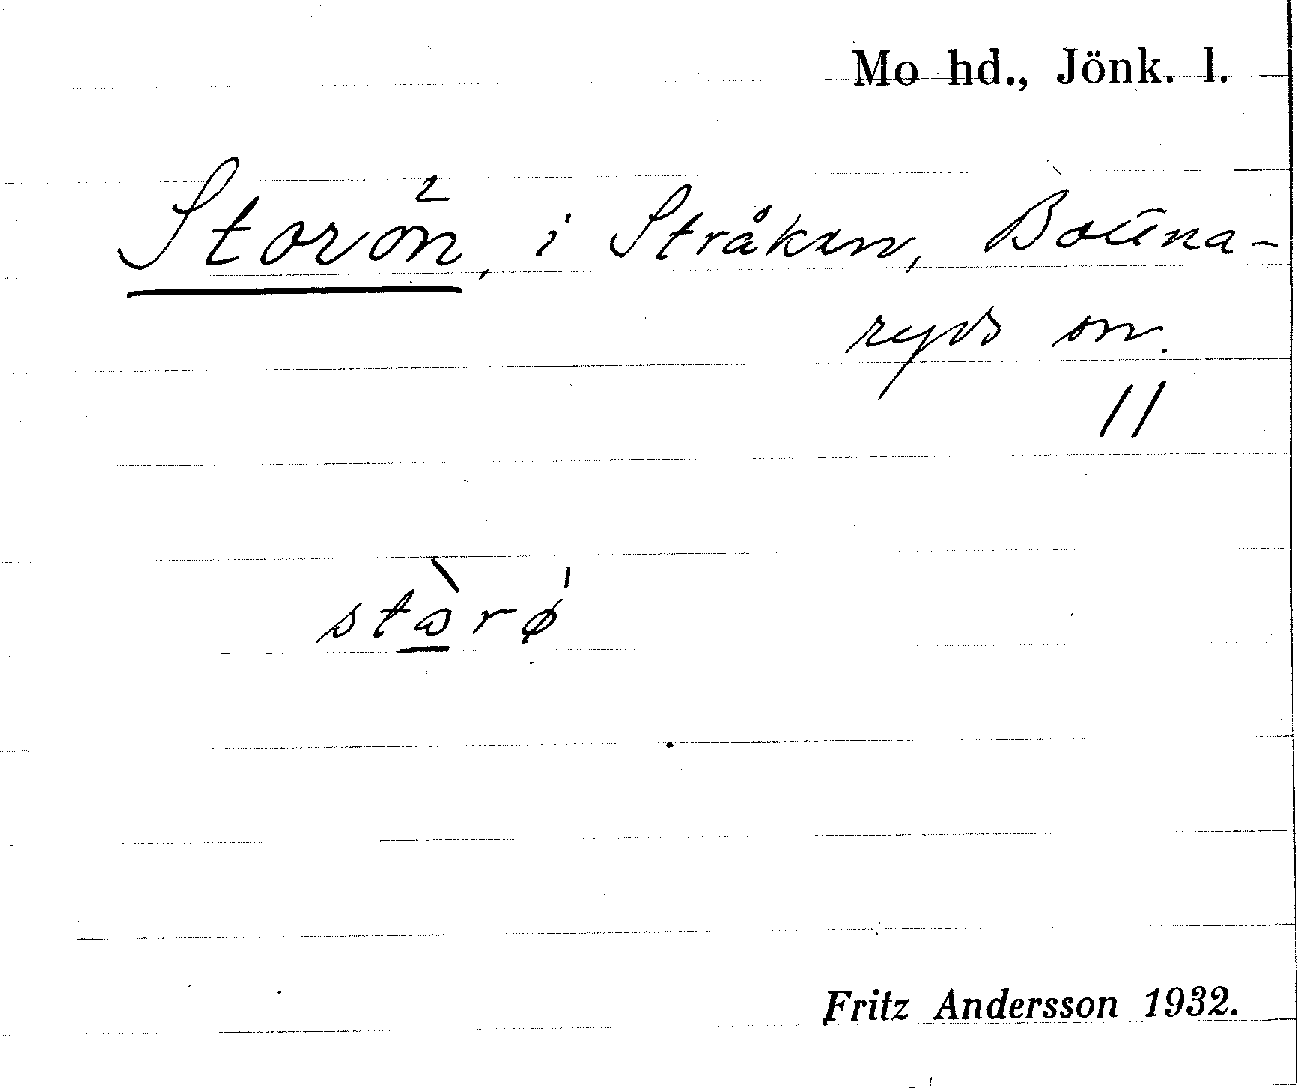 Mo hd., Jönk. l.
Storön, i Stråken, Bottna-
ryds sn.
11
stɷ̀rø̍
Fritz Andersson 1932.